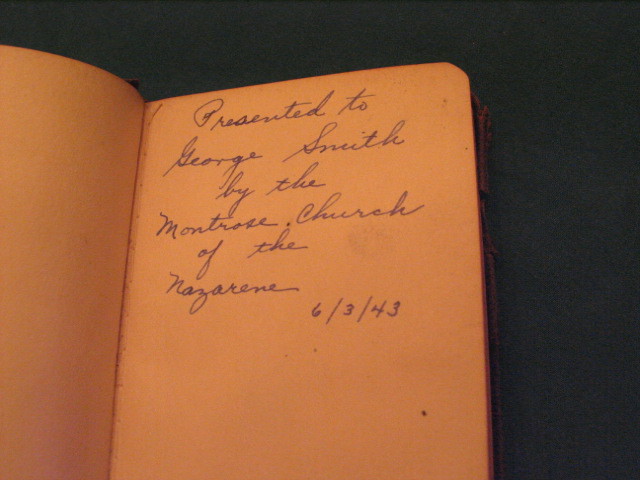 Presented to
George Smith
by the
Montrose Church
of the
Nazarene
6/3/43